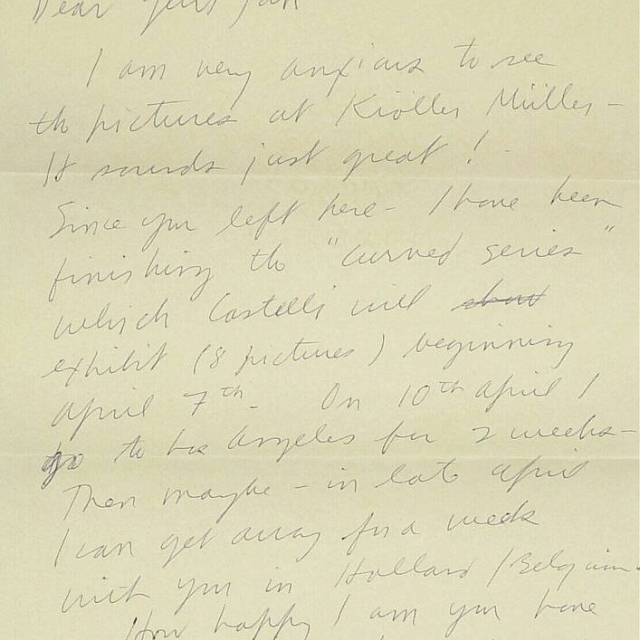 Dear
I am very anxious to see
the pictures at Kröller Müller –
It sounds just great !
Since you left here – I have been
finishing the "curved series"
which Castelli will show
exhibit (8 pictures) beginning
April 7th. On 10th April I
go to Los Angeles for 2 weeks –
Then maybe – in late April
I can get away for a week
with you in Holland / Belgium.
How happy I am you have